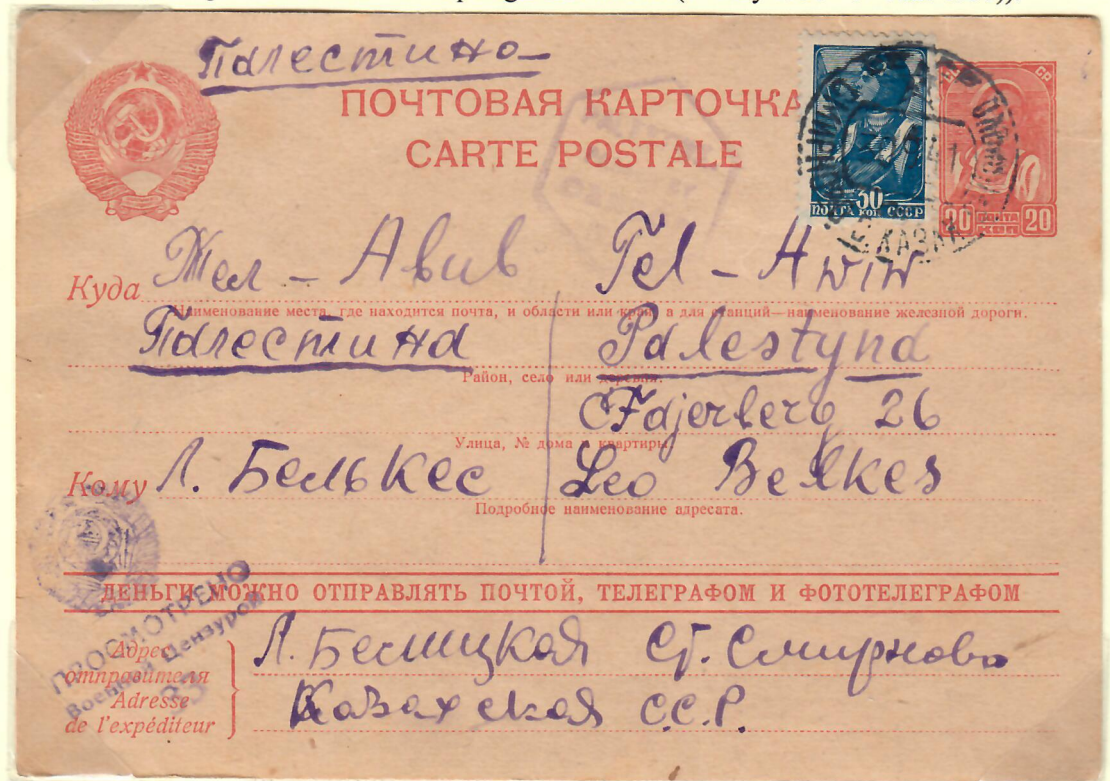 Палестино
ПОЧТОВАЯ КАРТОЧКА
CARTE POSTALE
30
ПОЧТА КОП. СССР
20 ПОЧТА КОП 20
Куда Тел - Авив Tel - Awiw
Наименование места, где находится почта, и области или края, а для станций—наименование железной дороги.
Палестина Palestyna
Район, село или деревня.
26
Улица, № дома и квартиры
Кому Л. Белькес Leo Belkes
Подробное наименование адресата.
ДЕНЬГИ МОЖНО ОТПРАВЛЯТЬ ПОЧТОЙ, ТЕЛЕГРАФОМ И ФОТОТЕЛЕГРАФОМ
ПРОСМОТРЕНО
Военной Цензурой
Адрес отправителя
Adresse de l'expéditeur
Л. Ст. Смирново
Казахская С.С.Р.